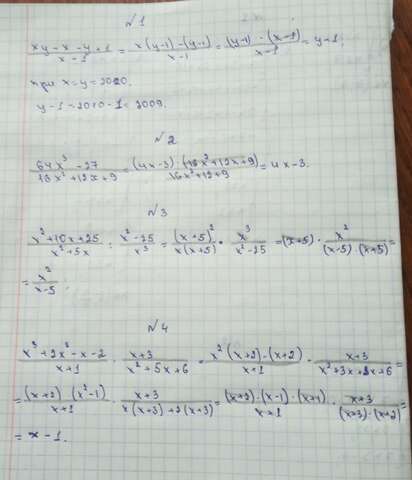 №1
xy-x-y+1/x-1 = x(y-1)-(y-1)/x-1 = (y-1)-(x-1)/x-1 = y-1;
при x=y=2010.
y-1=2010-1=2009.
№2
64x³-27/16x²+12x+9 = (4x-3)·(16x²+12x+9)/16x²+12+9 = 4x-3.
№3
x²+10x+25/x²+5x : x²-25/x³ = (x+5)²/x(x+5) · x³/x²-25 = (x+5)·x²/(x-5)·(x+5) =
= x²/x-5.
№4
x³+2x²-x-2/x+1 · x+3/x²+5x+6 = x²(x+2)-(x+2)/x+1 · x+3/x²+3x+2x+6 =
= (x+2)·(x²-1)/x+1 · x+3/x(x+3)+2(x+3) = (x+2)·(x-1)·(x+1)/x+1 · x+3/(x+3)·(x+2) =
= x-1.